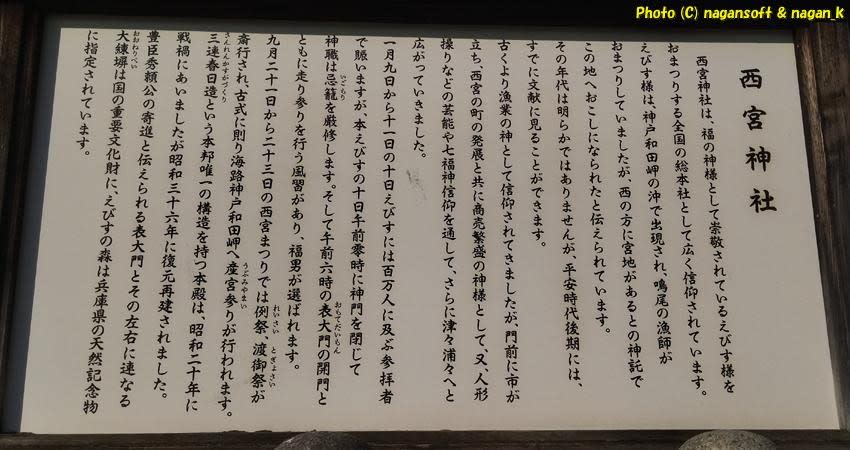 Photo (C) nagansoft & nagan_k
西宮神社
西宮神社は、福の神様として崇敬されているえびす様を
おまつりする全国の総本社として広く信仰されています。
えびす様は、神戸和田岬の沖で出現され、鳴尾の漁師が
おまつりしていましたが、西の方に宮地があるとの神託で
この地へおこしになられたと伝えられています。
その年代は明らかではありませんが、平安時代後期には、
すでに文献に見ることができます。
古くより漁業の神として信仰されてきましたが、門前に市が
立ち、西宮の町の発展と共に商売繁盛の神様として、又、人形
操りなどの芸能や七福神信仰を通して、さらに津々浦々へと
広がっていきました。
一月九日から十一日の十日えびすには百万人に及ぶ参拝者
で賑いますが、本えびすの十日午前零時に神門を閉じて
神職は忌籠を厳修します。そして午前六時の表大門の開門と
いごもり
おもてだいもん
ともに走り参りを行う風習があり、福男が選ばれます。
九月二十一日から二十三日の西宮まつりでは例祭、渡御祭が
れいさい
とぎょさい
斎行され、古式に則り海路神戸和田岬へ産宮参りが行われます。
うぶみやまい
三連春日造という本邦唯一の構造を持つ本殿は、昭和二十年に
さんれんかすがづくり
戦禍にあいましたが昭和三十六年に復元再建されました。
豊臣秀頼公の寄進と伝えられる表大門とその左右に連なる
大練塀は国の重要文化財に、えびすの森は兵庫県の天然記念物
おおねりべい
に指定されています。